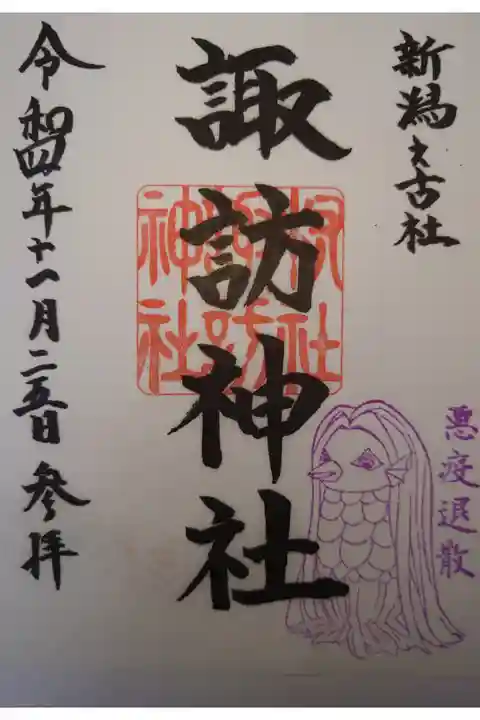 新潟大古社
諏訪神社
社
諏訪
神社
悪疫退散
令和四年十一月二五日参拝